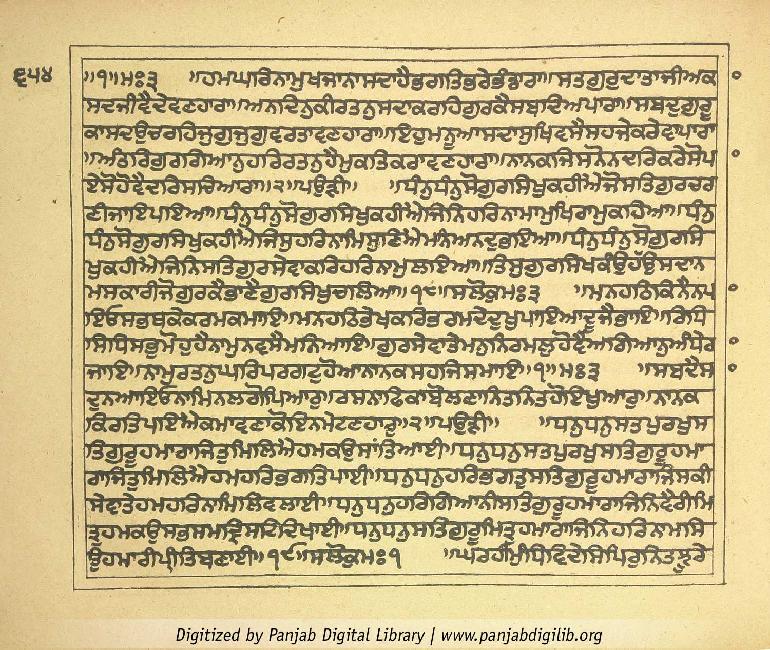 ੬੫੪
॥੧॥ਮਃ੩ ॥ਹਮਘਰਿਨਾਮੁਖਜਾਨਾਸਦਾਹੈਭਗਤਿਭਰੇਭੰਡਾਰਾ॥ਸਤਗੁਰੁਦਾਤਾਜੀਅਕਾ
ਸਦਜੀਵੈਦੇਵਣਹਾਰਾ॥ਅਨਦਿਨੁਕੀਰਤਨੁਸਦਾਕਰਹਿਗੁਰਕੈਸਬਦਿਅਪਾਰਾ॥ਸਬਦੁਗੁਰੂ
ਕਾਸਦਉਚਰਹਿਜੁਗੁਜੁਗੁਵਰਤਾਵਣਹਾਰਾ॥ਇਹੁਮਨੂਆਸਦਾਸੁਖਿਵਸੈਸਹਜੇਕਰੇਵਾਪਾਰਾ
॥ਅੰਤਰਿਗੁਰਗਿਆਨੁਹਰਿਰਤਨੁਹੈਮੁਕਤਿਕਰਾਵਣਹਾਰਾ॥ਨਾਨਕਜਿਸਨੋਨਦਰਿਕਰੇਸੋਪਾ
ਏਸੋਹੋਵੈਦਰਿਸਚਿਆਰਾ॥੨॥ਪਉੜੀ॥ ॥ਧੰਨੁਧੰਨੁਸੋਗੁਰਸਿਖੁਕਹੀਐਜੋਸਤਿਗੁਰਚਰ
ਣੀਜਾਇਪਇਆ॥ਧੰਨੁਧੰਨੁਸੋਗੁਰਸਿਖੁਕਹੀਐਜਿਨਿਹਰਿਨਾਮਾਮੁਖਿਰਾਮੁਕਹਿਆ॥ਧੰਨੁ
ਧੰਨੁਸੋਗੁਰਸਿਖੁਕਹੀਐਜਿਸੁਹਰਿਨਾਮਿਸੁਣਿਐਮਨਿਅਨਦੁਭਇਆ॥ਧੰਨੁਧੰਨੁਸੋਗੁਰਸਿ
ਖੁਕਹੀਐਜਿਨਿਸਤਿਗੁਰਸੇਵਾਕਰਿਹਰਿਨਾਮੁਲਇਆ॥ਤਿਸੁਗੁਰਸਿਖਕੰਉਹੰਉਸਦਾਨ
ਮਸਕਾਰੀਜੋਗੁਰਕੈਭਾਣੈਗੁਰਸਿਖੁਚਲਿਆ॥੧੮॥ਸਲੋਕੁਮਃ੩ ॥ਮਨਹਠਿਕਿਨੈਨਪਾ
ਇਓਸਭਥਕੇਕਰਮਕਮਾਇ॥ਮਨਹਠਿਭੇਖਕਰਿਭਰਮਦੇਦੁਖੁਪਾਇਆਦੂਜੈਭਾਇ॥ਰਿਧਿ
ਸਿਧਿਸਭੁਮੋਹੁਹੈਨਾਮੁਨਵਸੈਮਨਿਆਇ॥ਗੁਰਸੇਵਾਤੇਮਨੁਨਿਰਮਲੁਹੋਵੈਅਗਿਆਨੁਅੰਧੇਰਾ
ਜਾਇ॥ਨਾਮੁਰਤਨੁਘਰਿਪਰਗਟੁਹੋਆਨਾਨਕਸਹਜਿਸਮਾਇ॥੧॥ਮਃ੩ ॥ਸਬਦੈਸਾ
ਦੁਨਆਇਓਨਾਮਿਨਲਗੋਪਿਆਰੁ॥ਰਸਨਾਫਿਕਾਬੋਲਣਾਨਿਤਨਿਤਹੋਇਖੁਆਰੁ॥ਨਾਨਕ
ਕਿਰਤਿਪਇਐਕਮਾਵਣਾਕੋਇਨਮੇਟਣਹਾਰੁ॥੨॥ਪਉੜੀ॥ ॥ਧਨੁਧਨੁਸਤਪੁਰਖੁਸ
ਤਿਗੁਰੂਹਮਾਰਾਜਿਤੁਮਿਲਿਐਹਮਕਉਸਾਂਤਿਆਈ॥ਧਨੁਧਨੁਸਤਪੁਰਖੁਸਤਿਗੁਰੂਹਮਾ
ਰਾਜਿਤੁਮਿਲਿਐਹਮਹਰਿਭਗਤਿਪਾਈ॥ਧਨੁਧਨੁਹਰਿਭਗਤੁਸਤਿਗੁਰੂਹਮਾਰਾਜਿਸਕੀ
ਸੇਵਾਤੇਹਮਹਰਿਨਾਮਿਲਿਵਲਾਈ॥ਧਨੁਧਨੁਹਰਿਗਿਆਨੀਸਤਿਗੁਰੂਹਮਾਰਾਜਿਨਿਵੈਰੀਮਿ
ਤ੍ਰੁਹਮਕਉਸਭਸਮਦ੍ਰਿਸਟਿਦਿਖਾਈ॥ਧਨੁਧਨੁਸਤਿਗੁਰੂਮਿਤ੍ਰੁਹਮਾਰਾਜਿਨਿਹਰਿਨਾਮਸਿ
ਉਹਮਾਰੀਪ੍ਰੀਤਿਬਣਾਈ॥੧੯॥ਸਲੋਕੁਮਃ੧ ॥ਘਰਹੀਮੁੰਧਿਵਿਦੇਸਿਪਿਰੁਨਿਤਝੂਰੇ
Digitized by Panjab Digital Library | www.panjabdigilib.org